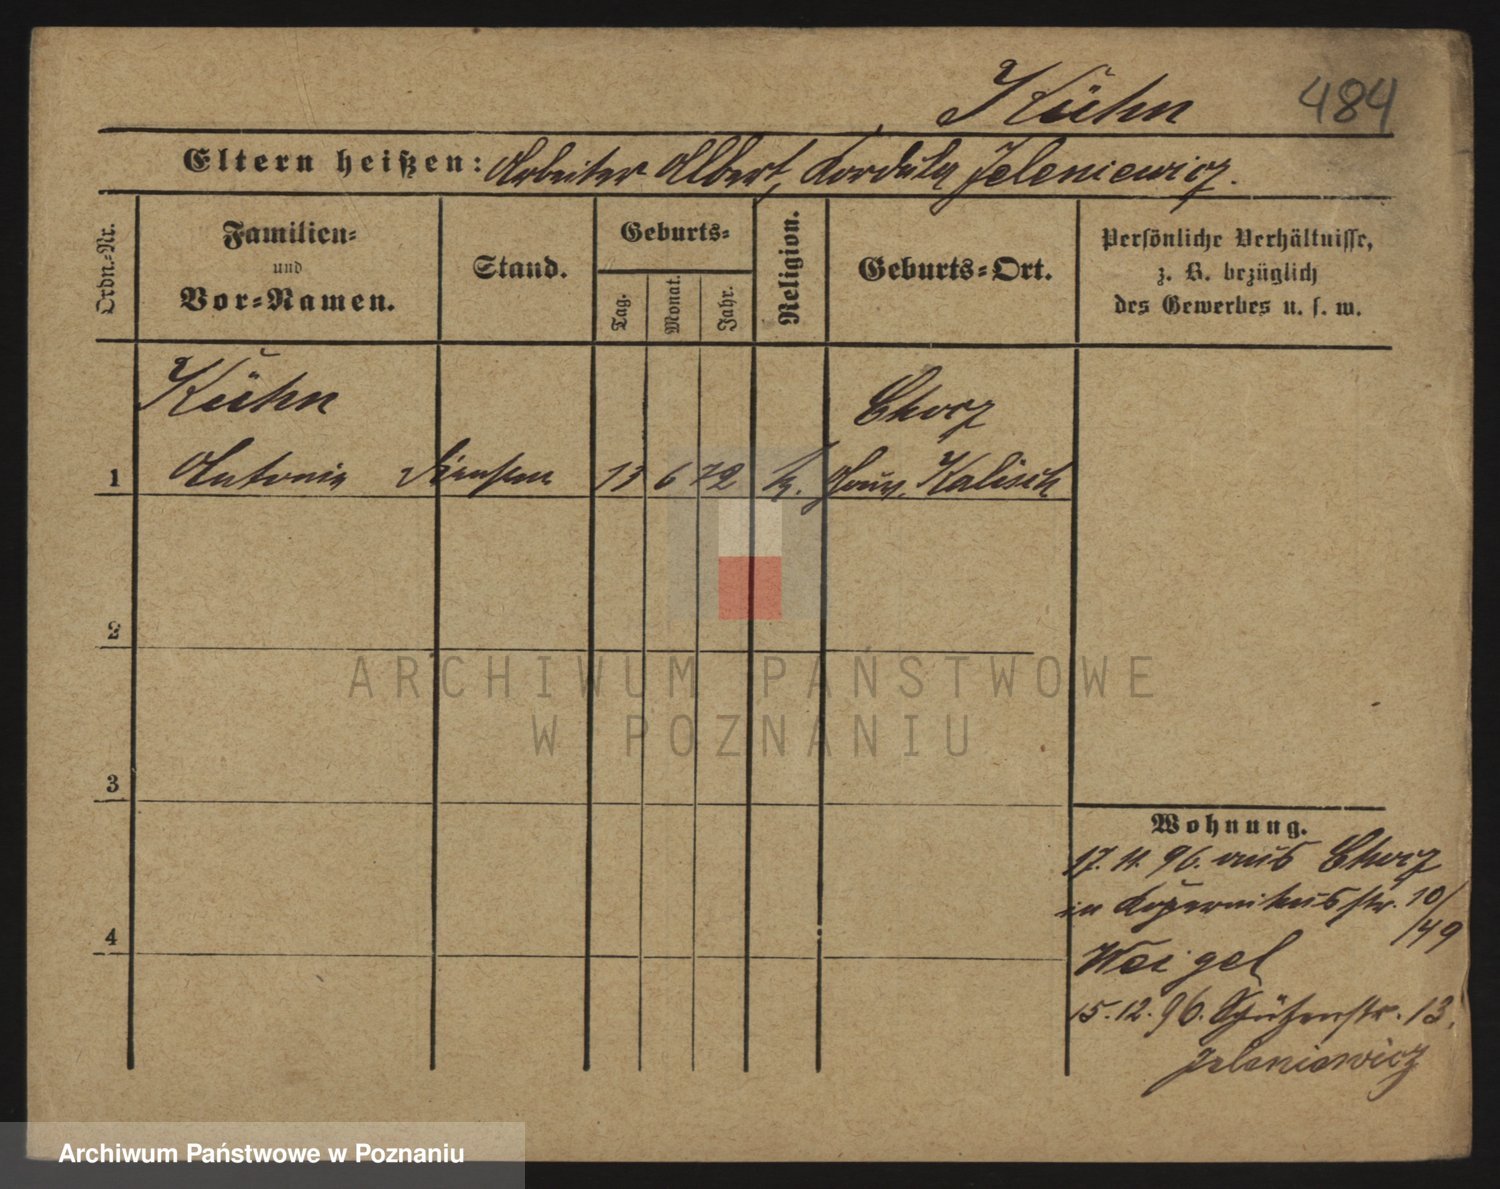 Kühn 484
Eltern heißen: Arbeiter Albert, Kordula Jeleniewicz.
Ordn.-Nr.
Familien-
und
Vor-Namen.
Stand.
Geburts-
Tag.
Monat.
Jahr.
Religion.
Geburts-Ort.
Persönliche Verhältnisse,
z. B. bezüglich
des Gewerbes u. s. w.
Kühn Chocz
1 Antonie 13 6 72 k. Gouv. Kalisch
2
3
4
Wohnung.
17. 11. 96. aus Chocz
in Kopernikusstr. 10/
/49
Weigel
15. 12. 96. Schützenstr. 13.
Jeleniewicz
ARCHIWUM PAŃSTWOWE
W POZNANIU
Archiwum Państwowe w Poznaniu